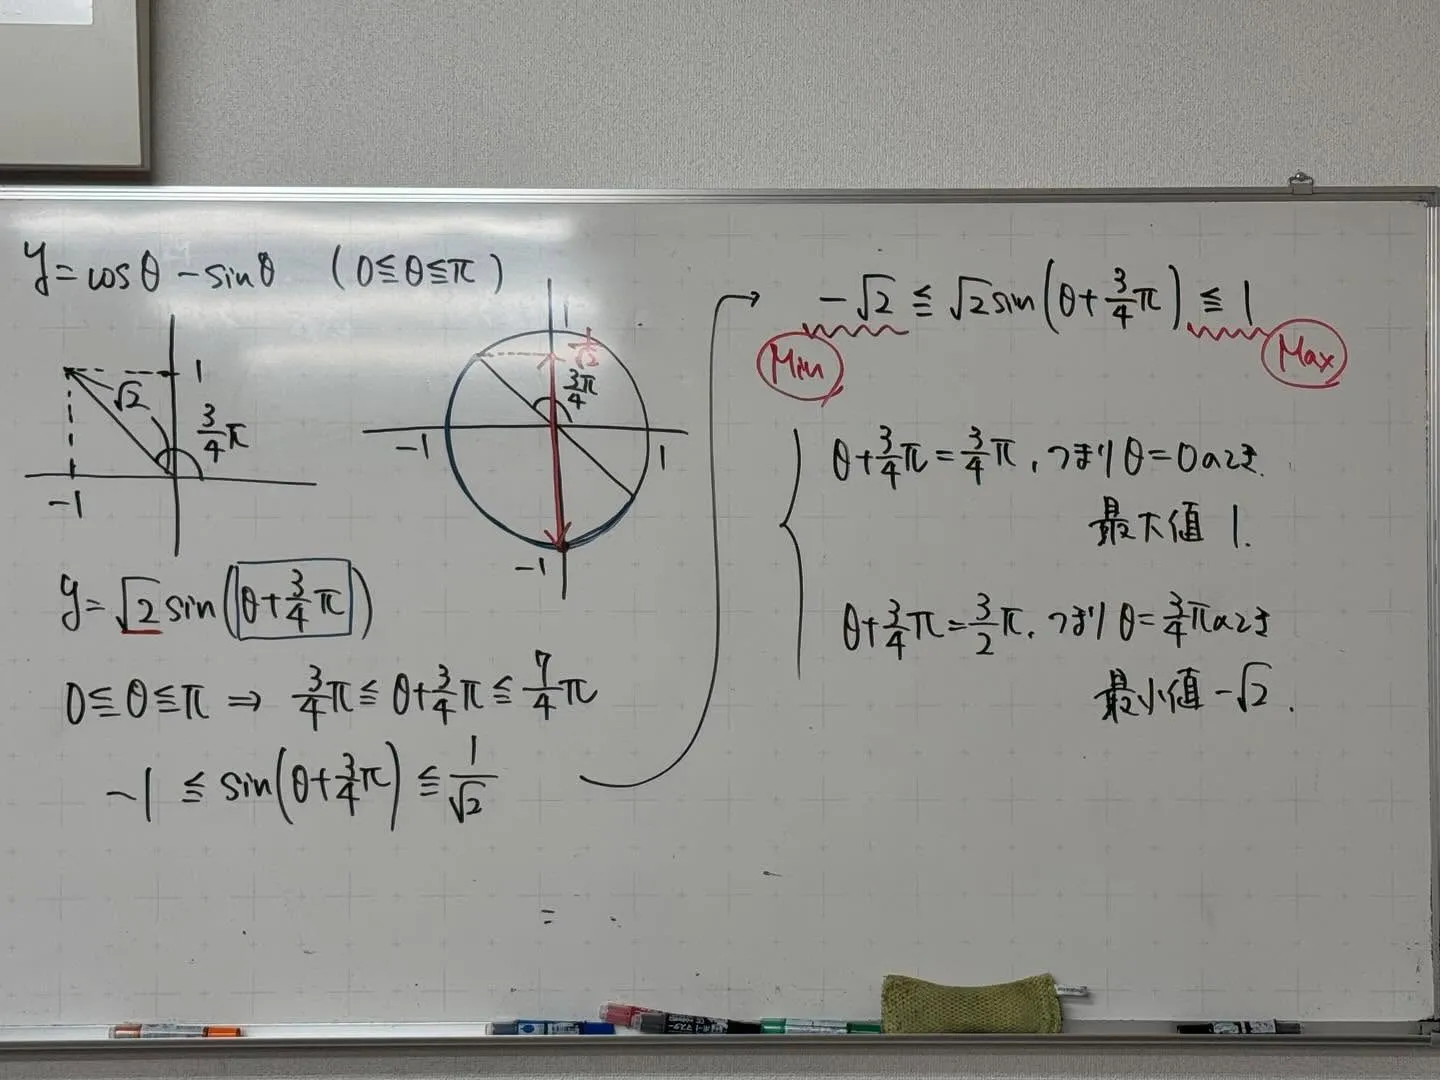 y=cosθ-sinθ (0≦θ≦π)
1
√2
3/4π
-1
1
1/√2
3π/4
-1
1
-1
y=√2sin(θ+3/4π)
0≦θ≦π ⇒ 3/4π≦θ+3/4π≦7/4π
-1≦sin(θ+3/4π)≦1/√2
-√2≦√2sin(θ+3/4π)≦1
Min
Max
θ+3/4π=3/4π,つまりθ=0のとき.
最大値 1.
θ+3/4π=3/2π,つまりθ=3/4πのとき
最小値-√2.